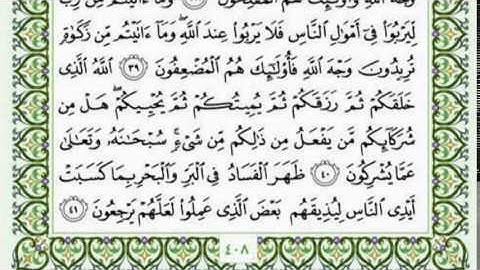 وَجْهَ ٱللَّهِ وَأُو۟لَـٰٓئِكَ هُمُ ٱلْمُفْلِحُونَ ٣٨ وَمَآ ءَاتَيْتُم مِّن رِّبًا
لِّيَرْبُوَا۟ فِىٓ أَمْوَٰلِ ٱلنَّاسِ فَلَا يَرْبُوا۟ عِندَ ٱللَّهِ ۖ وَمَآ ءَاتَيْتُم مِّن زَكَوٰةٍ
تُرِيدُونَ وَجْهَ ٱللَّهِ فَأُو۟لَـٰٓئِكَ هُمُ ٱلْمُضْعِفُونَ ٣٩ ٱللَّهُ ٱلَّذِى
خَلَقَكُمْ ثُمَّ رَزَقَكُمْ ثُمَّ يُمِيتُكُمْ ثُمَّ يُحْيِيكُمْ ۖ هَلْ مِن
شُرَكَآئِكُم مَّن يَفْعَلُ مِن ذَٰلِكُم مِّن شَىْءٍ ۚ سُبْحَـٰنَهُۥ وَتَعَـٰلَىٰ
عَمَّا يُشْرِكُونَ ٤٠ ظَهَرَ ٱلْفَسَادُ فِى ٱلْبَرِّ وَٱلْبَحْرِ بِمَا كَسَبَتْ
أَيْدِى ٱلنَّاسِ لِيُذِيقَهُم بَعْضَ ٱلَّذِى عَمِلُوا۟ لَعَلَّهُمْ يَرْجِعُونَ ٤١
٤٠٨